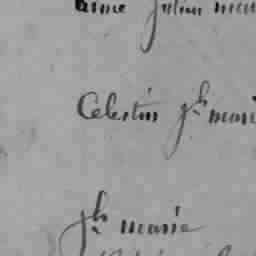 Julien
Celestin jh mari
jh marie